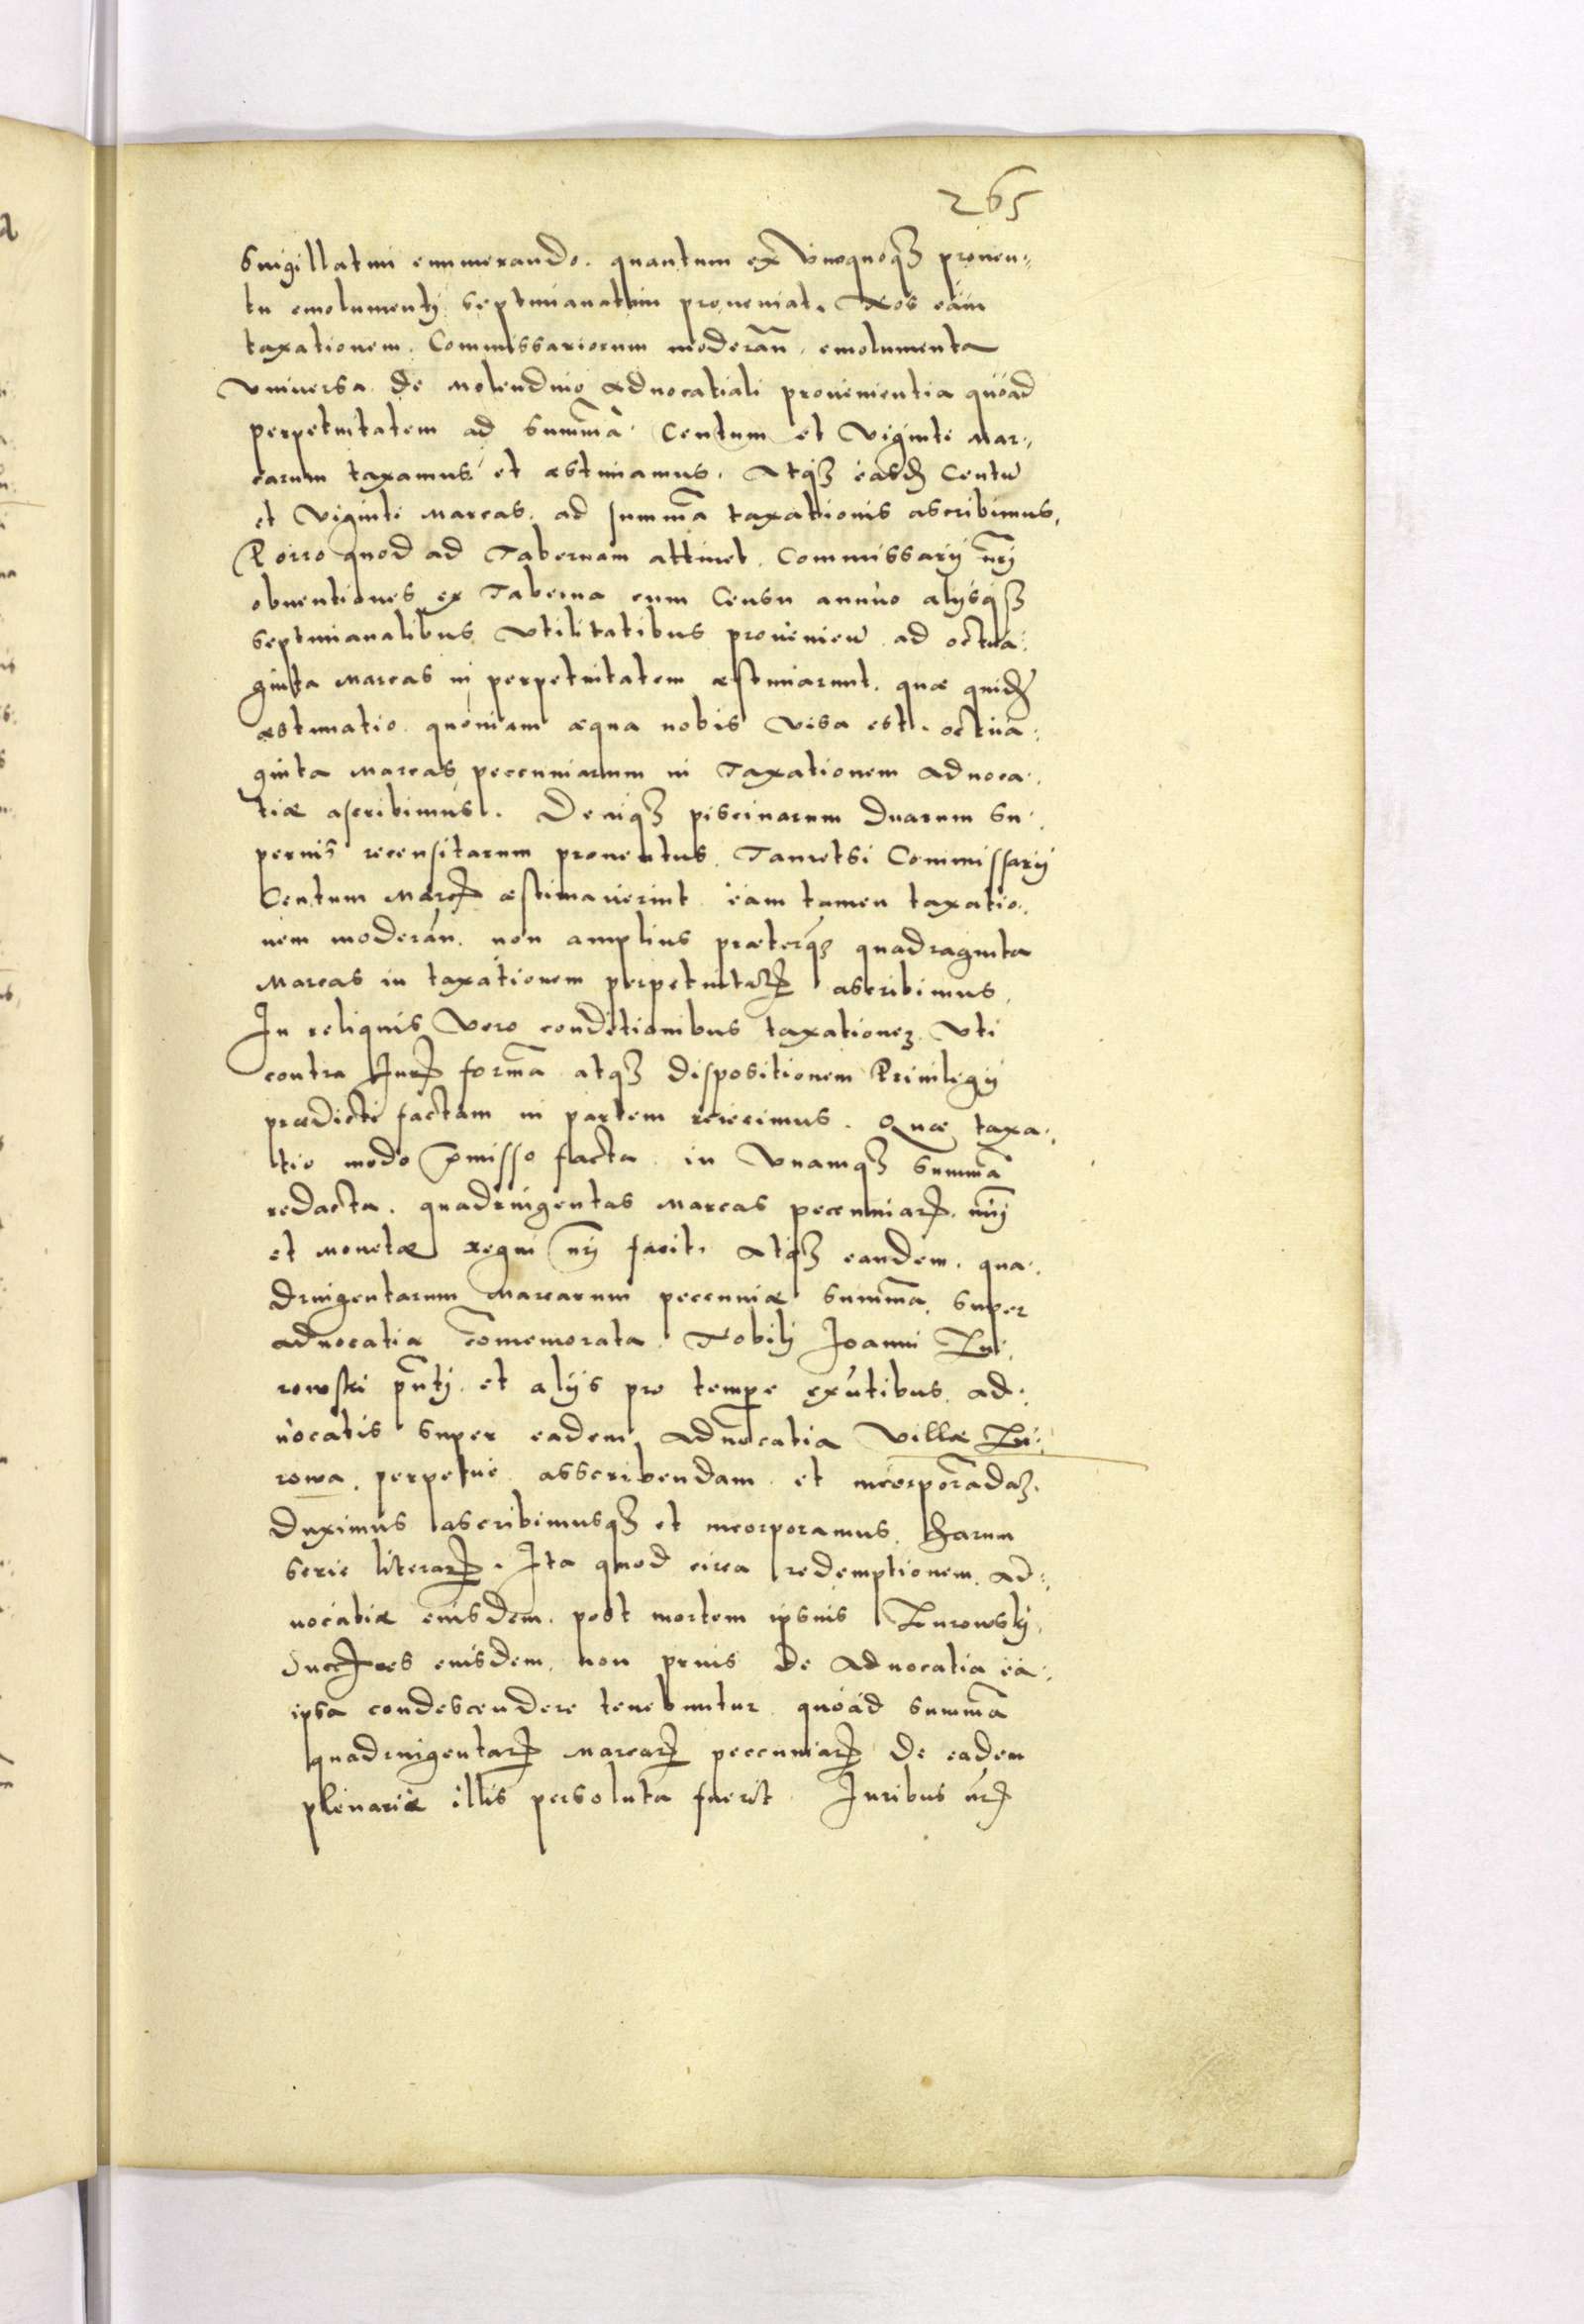 265
singillatim enumerando. quantum ex vnoquoqȝ prouen„
tu emolumenti septimanatim proueniat. Nos eam
taxationem Commissariorum moderan̄. emolumenta
vniuersa de molendino aduocatiali prouenientia quoad
perpetuitatem ad summā Centum et viginti mar„
carum taxamus et æstimamus. Atqȝ easd Centū
et viginti marcas ad summā taxationis ascribimus,
Porro quod ad Tabernam attinet. Commissarij nr̄i
obuentiones ex Taberna cum Censu annuo alijsqȝ
septimanalibus vtilitatibus prouenien̄ ad octua„
ginta marcas in perpetuitatem æstimarunt. quæ quid
æstimatio quoniam æqua nobis visa est. octua„
ginta marcas pecuniarum in Taxationem aduoca„
tiæ ascribimus. Deniqȝ piscinarum duarum su„
perius recensitarum prouentus. Tametsi Commissarij
Centum marc æstimauerint eam tamen taxatio„
nem moderan̄. non amplius præterqȝ quadraginta
marcas in taxationem perpetuitat ascribimus.
In reliquis vero conditionibus taxationeȝ vti
contra Jur formā atqȝ dispositionem Priuilegij
prædicti factam in partem reiecimus. Quæ taxa„
tio modo p̄misso facta in vnamqȝ summā
redacta. quadringentas marcas pecuniar n̄ri
et monetæ regni nr̄i facit. Atqȝ eandem. qua„
dringentarum marcarum pecuniæ summā super
aduocatia com̄emorata. Nobili Joanni Tu„
rowski pn̄ti et alijs pro tempe ex̄ntibus. ad„
uocatis super eadem aduocatia villæ Tu„
rowa. perpetue asscribendam et incorporādaȝ.
duximus ascribimusqȝ et incorporamus. Harum
serie literar. Ita quod circa redemptionem ad„
uocatiæ eiusdem. post mortem ipsius Turowski
Succes eiusdem non prius de aduocatia ea„
ipsa condescendere tenebuntur quoad summā
quadringentar marcar pecuniar de eadem
plenariæ illis persoluta fuerit. Juribus nr̄